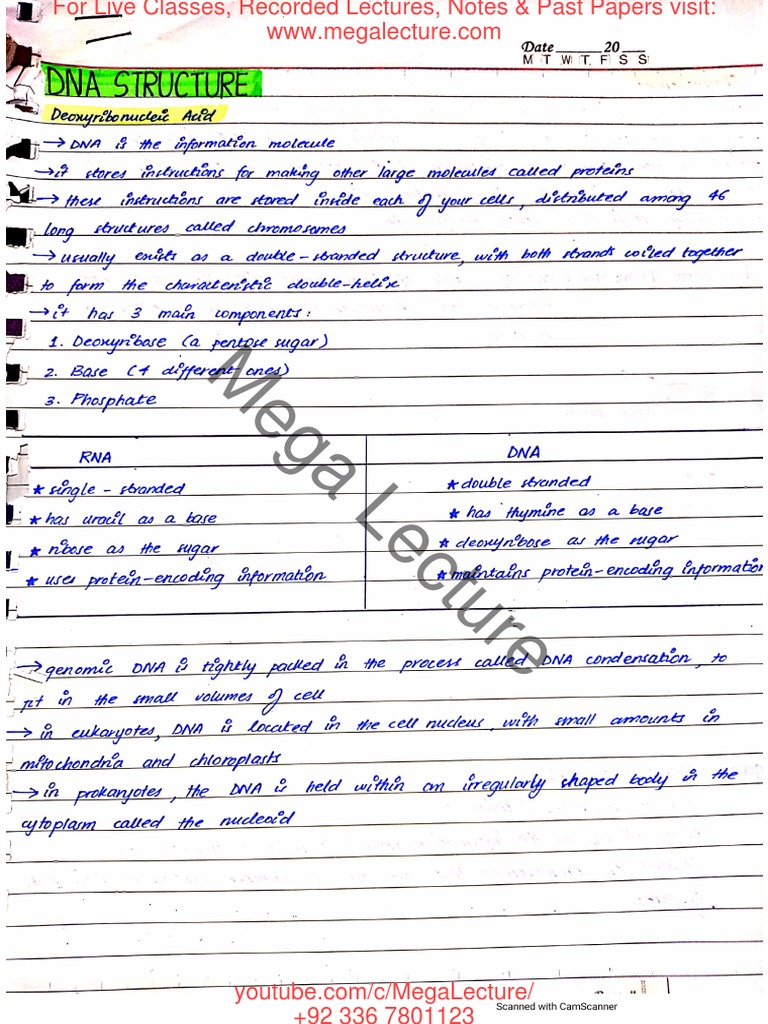 For Live Classes, Recorded Lectures, Notes & Past Papers visit:
www.megalecture.com
Date 20
M T W T F S S
DNA STRUCTURE
Deoxyribonucleic Acid
→ DNA is the information molecule
→ it stores instructions for making other large molecules called proteins
→ these instructions are stored inside each of your cells, distributed among 46
long structures called chromosomes
→ usually exists as a double-stranded structure, with both strands coiled together
to form the characteristic double-helix
→ it has 3 main components:
1. Deoxyribase (a pentose sugar)
2. Base (4 different ones)
3. Phosphate
RNA DNA
★ single-stranded ★ double stranded
★ has uracil as a base ★ has thymine as a base
★ ribose as the sugar ★ deoxyribose as the sugar
★ uses protein-encoding information ★ maintains protein-encoding information
→ genomic DNA is tightly packed in the process called DNA condensation, to
fit in the small volumes of cell
→ in eukaryotes, DNA is located in the cell nucleus, with small amounts in
mitochondria and chloroplasts
→ in prokaryotes, the DNA is held within an irregularly shaped body in the
cytoplasm called the nucleoid
Mega Lecture
youtube.com/c/MegaLecture/
Scanned with CamScanner
+92 336 7801123